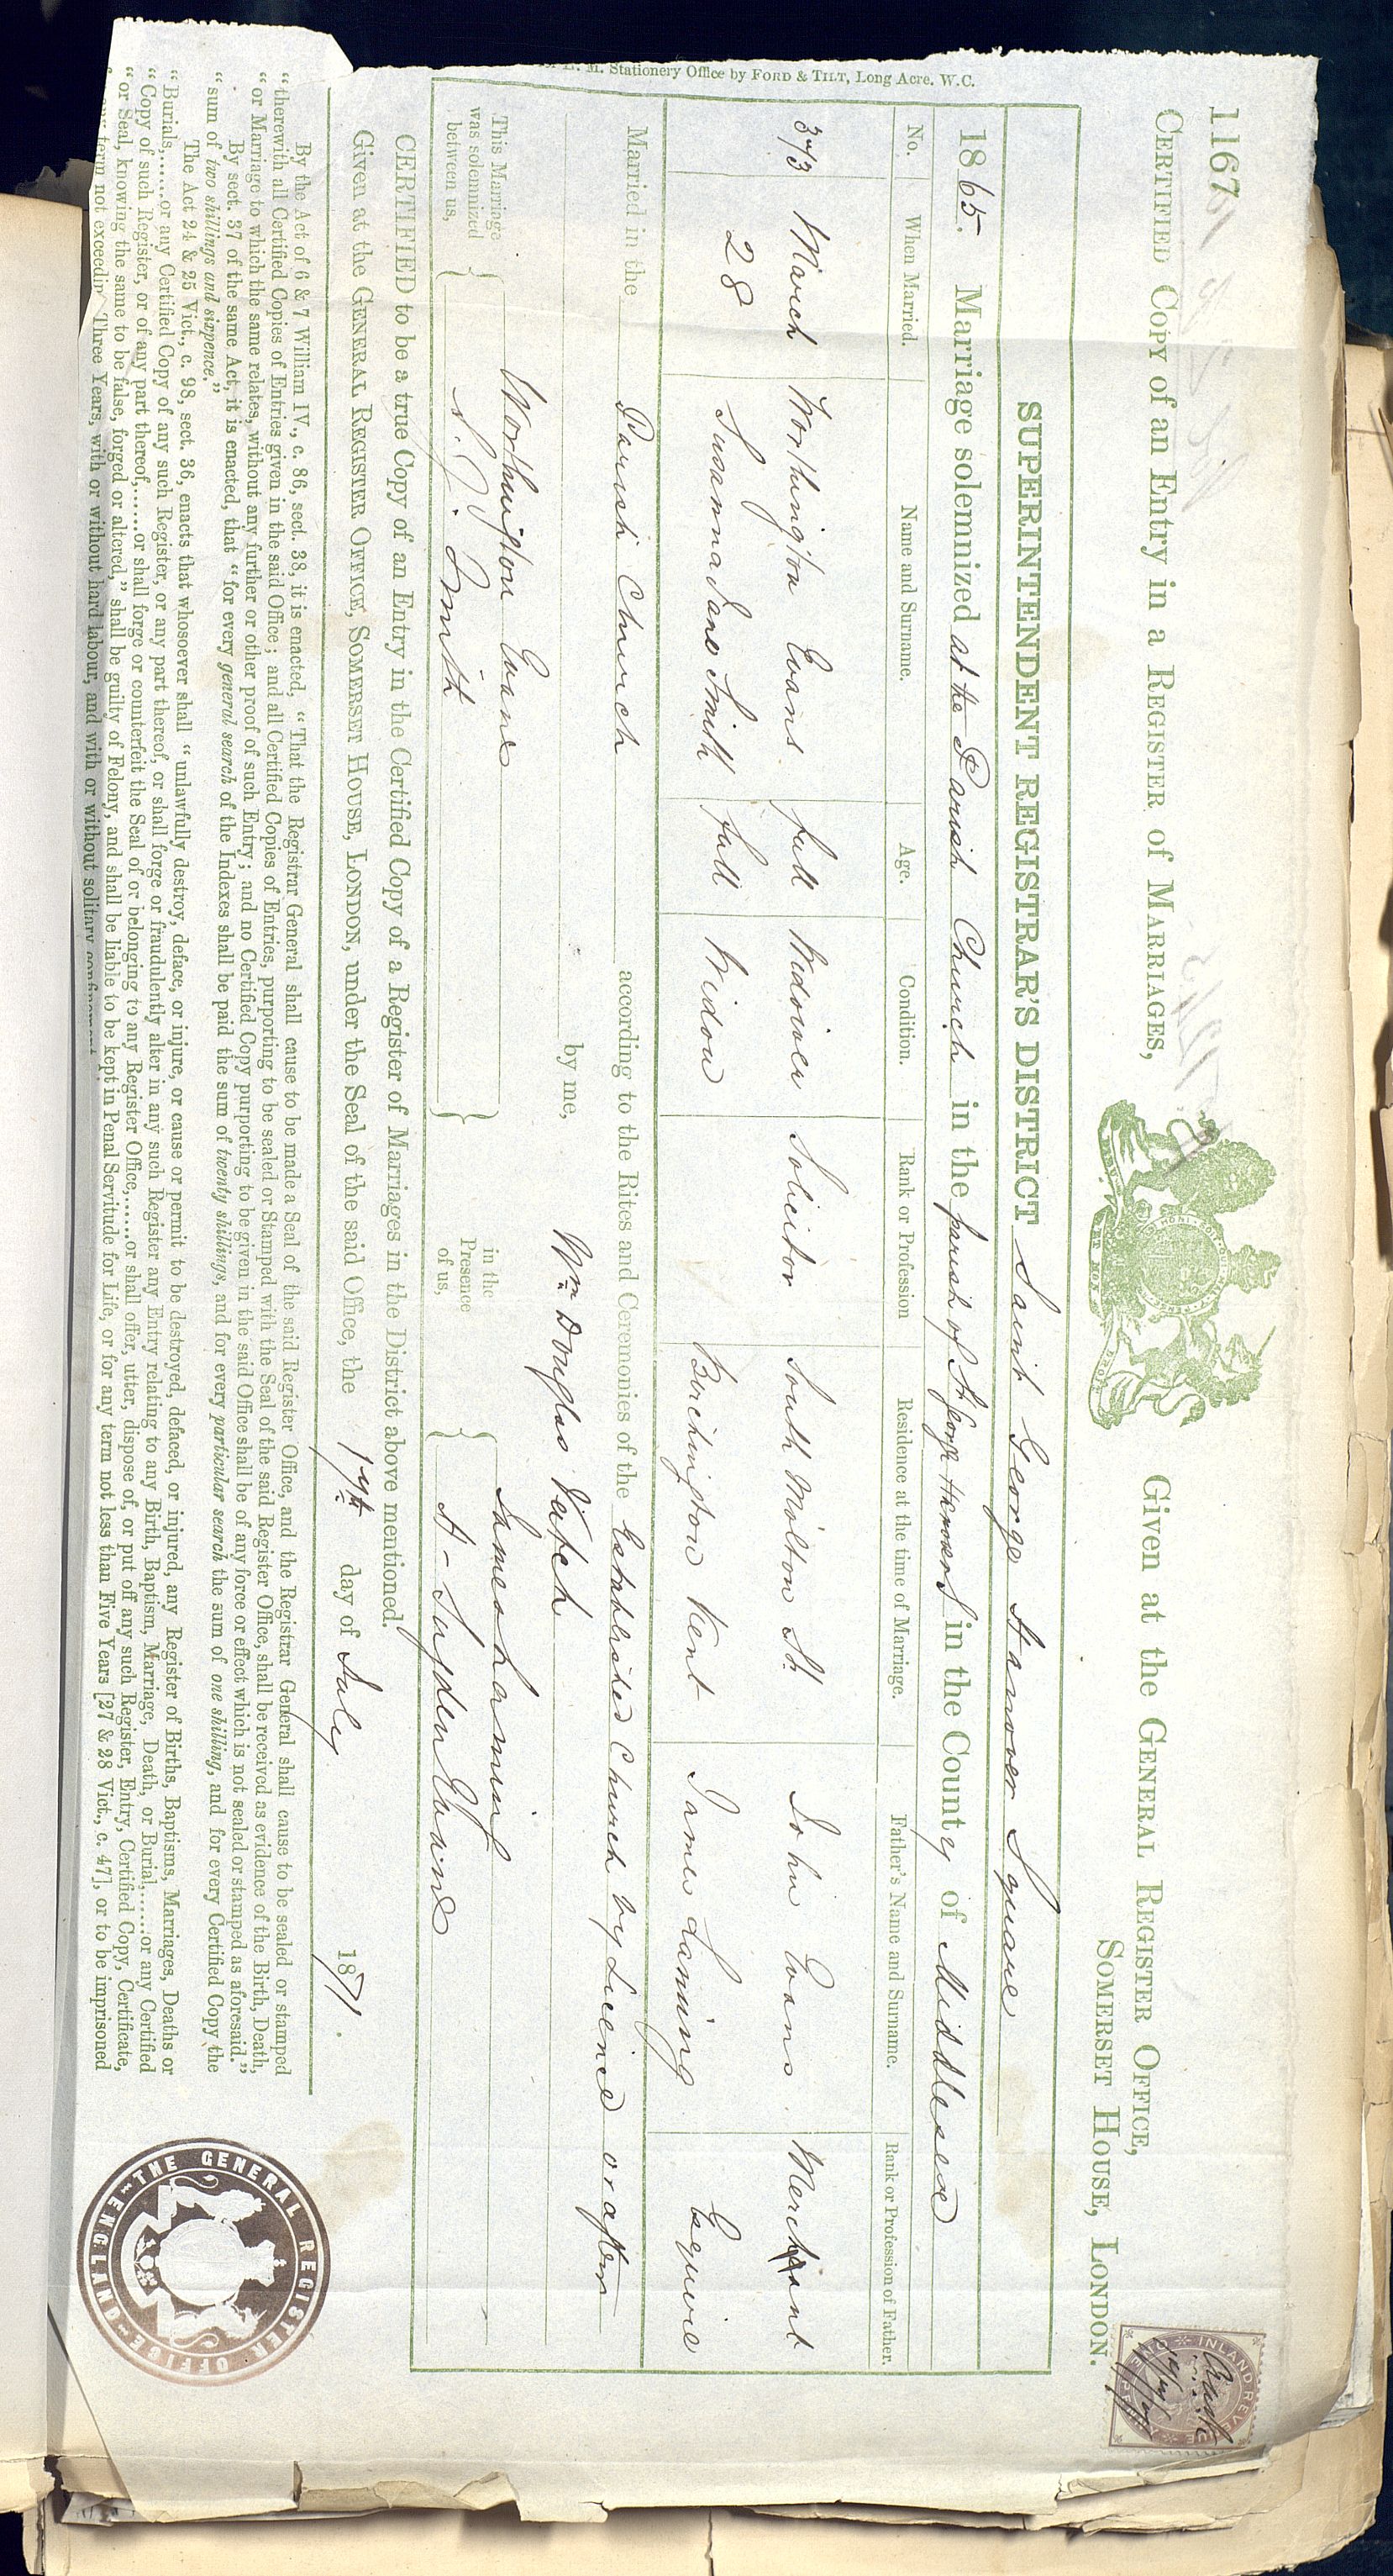 1167
CERTIFIED COPY of an ENTRY in a REGISTER of MARRIAGES,
Given at the GENERAL REGISTER OFFICE,
SOMERSET HOUSE, LONDON.
SUPERINTENDENT REGISTRAR'S DISTRICT Saint George Hanover Square
1865. Marriage solemnized at the Parish Church in the parish of St George Hanover Sq in the County of Middlesex
No. When Married. Name and Surname. Age. Condition. Rank or Profession Residence at the time of Marriage. Father's Name and Surname. Rank or Profession of Father.
373 March Worthington Evans full Widower Solicitor South Molton St. John Evans Merchant
28 Susanna Jane Smith full Widow Birchington Kent James Laming Esquire
Married in the Parish Church according to the Rites and Ceremonies of the Established Church by Licence or after
by me, Wm Douglas Veitch
This Marriage was solemnized between us, Worthington Evans in the Presence of us, James Laming
S. J. Smith A- Sayden Evans
CERTIFIED to be a true Copy of an Entry in the Certified Copy of a Register of Marriages in the District above mentioned.
Given at the GENERAL REGISTER OFFICE, SOMERSET HOUSE, LONDON, under the Seal of the said Office, the 17th day of July 1871.
By the Act of 6 & 7 William IV., c. 86, sect. 38, it is enacted, "That the Registrar General shall cause to be made a Seal of the said Register Office, and the Registrar General shall cause to be sealed or stamped
"therewith all Certified Copies of Entries given in the said Office; and all Certified Copies of Entries, purporting to be sealed or Stamped with the Seal of the said Register Office, shall be received as evidence of the Birth, Death,
"or Marriage to which the same relates, without any further or other proof of such Entry; and no Certified Copy purporting to be given in the said Office shall be of any force or effect which is not sealed or stamped as aforesaid."
By sect. 37 of the same Act, it is enacted, that "for every general search of the Indexes shall be paid the sum of twenty shillings, and for every particular search the sum of one shilling, and for every Certified Copy the
"sum of two shillings and sixpence."
The Act 24 & 25 Vict., c. 98, sect. 36, enacts that whosoever shall "unlawfully destroy, deface, or injure, or cause or permit to be destroyed, defaced, or injured, any Register of Births, Baptisms, Marriages, Deaths or
"Burials,......or any Certified Copy of any such Register, or any part thereof, or shall forge or fraudulently alter in any such Register any Entry relating to any Birth, Baptism, Marriage, Death, or Burial,......or any Certified
"Copy of such Register, or of any part thereof,......or shall forge or counterfeit the Seal of or belonging to any Register Office,......or shall offer, utter, dispose of, or put off any such Register, Entry, Certified Copy, Certificate,
"or Seal, knowing the same to be false, forged or altered," shall be guilty of Felony, and shall be liable to be kept in Penal Servitude for Life, or for any term not less than Five Years [27 & 28 Vict., c. 47], or to be imprisoned
any term not exceeding Three Years, with or without hard labour, and with or without solitary confinement.
M. Stationery Office by FORD & TILT, Long Acre. W.C.
THE GENERAL REGISTER OFFICE ENGLAND
INLAND REVENUE ONE PENNY